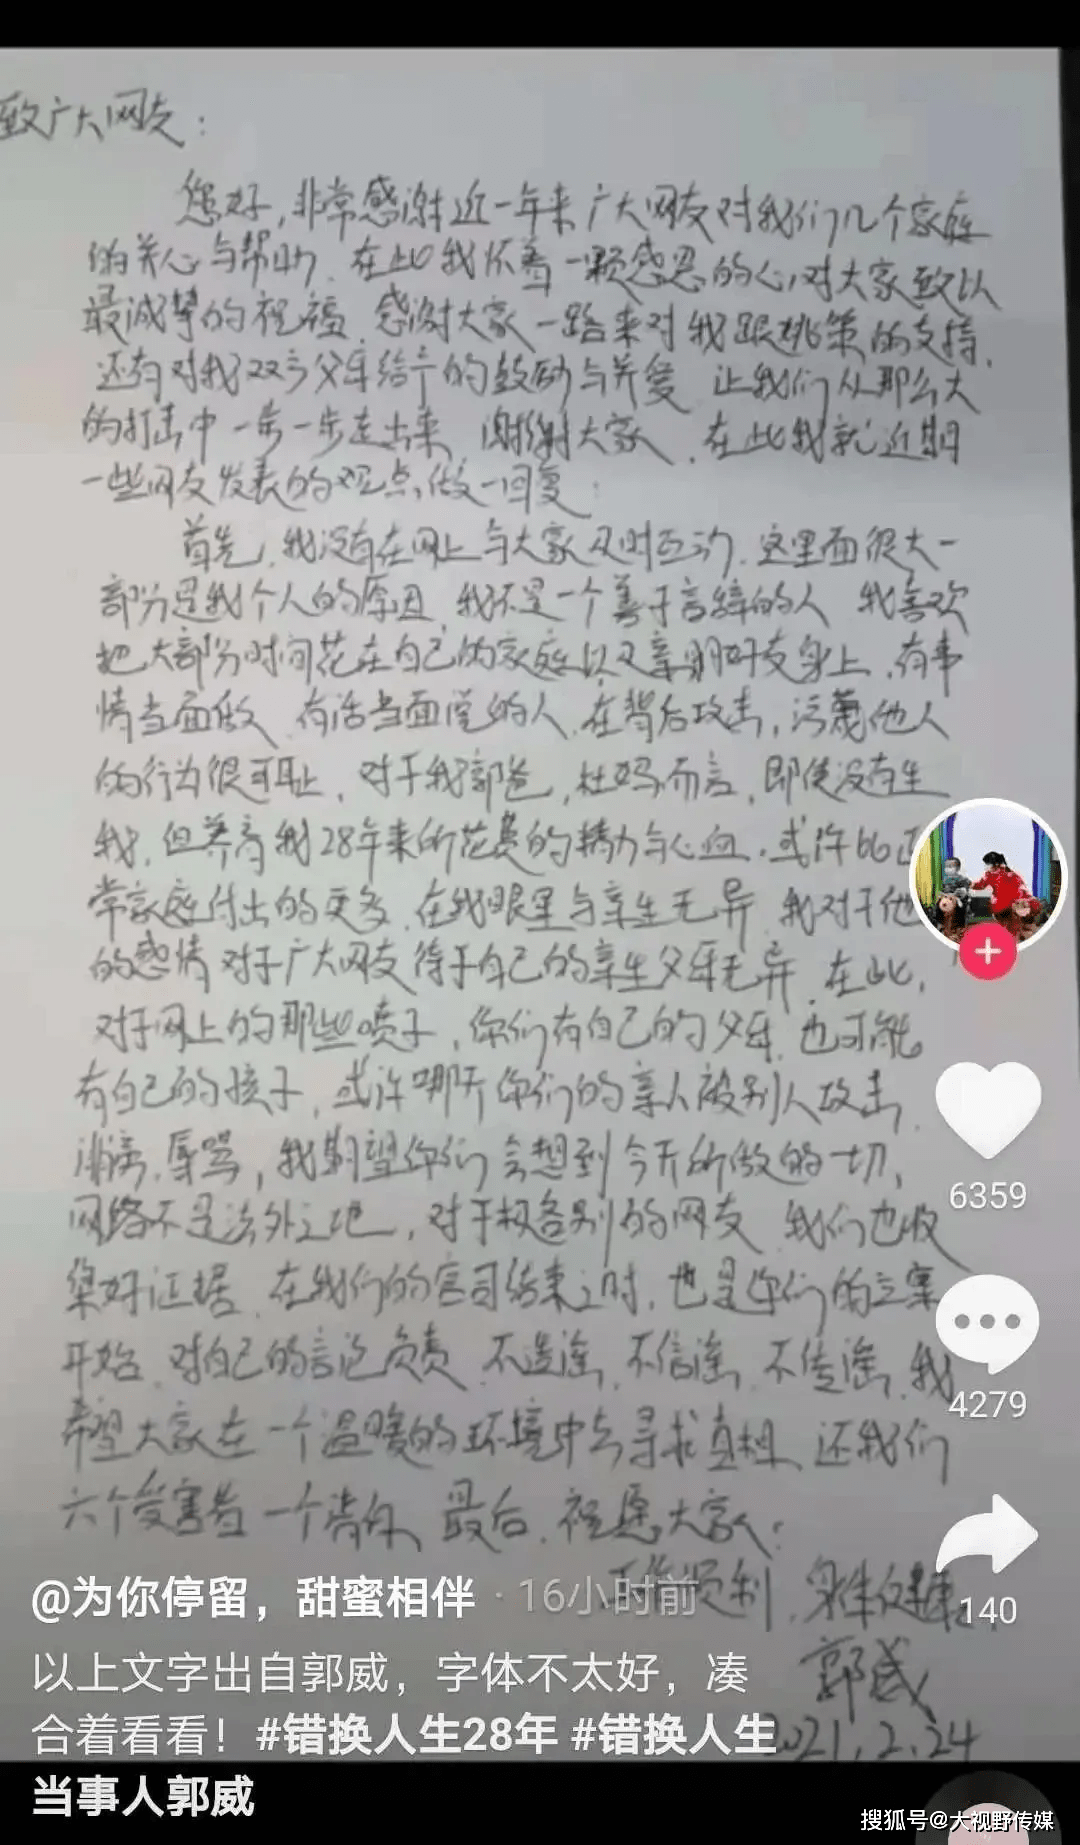 致广大网友：
您好，非常感谢近一年来广大网友对我们几个家庭
的关心与帮助，在此我怀着一颗感恩的心，对大家致以
最诚挚的祝福，感谢大家一路来对我跟姚策的支持，
还有对我双方父母给予的鼓励与关爱，让我们从那么大
的打击中一步一步走出来，谢谢大家，在此我就近期
一些网友发表的观点做一回复：
首先，我没有在网上与大家及时互动，这里面很大一
部分是我个人的原因，我不是一个善于言辞的人，我喜欢
把大部分时间花在自己的家庭以及亲朋好友身上，有事
情当面做，有话当面说的人，在背后攻击，污蔑他人
的行为很可耻，对于我郭爸，杜妈而言，即使没有生
我，但养育我28年来所花费的精力与心血，或许比正
常家庭付出的更多，在我眼里与亲生无异，我对于他
的感情对于广大网友待于自己的亲生父母无异，在此，
对于网上的那些喷子，你们有自己的父母，也可能
有自己的孩子，或许哪天你们的亲人被别人攻击，
诽谤，辱骂，我期望你们会想到今天所做的一切，
网络不是法外之地，对于极各别的网友，我们也收
集好证据，在我们的官司结束之时，也是你们的立案
开始，对自己的言论负责，不造谣，不信谣，不传谣，我
希望大家在一个温暖的环境中去寻求真相，还我们
六个受害者一个清白，最后，祝愿大家：
工作顺利，身体健康
郭威
2021.2.24
6359
4279
140
@为你停留，甜蜜相伴 · 16小时前
以上文字出自郭威，字体不太好，凑
合着看看！#错换人生28年 #错换人生
当事人郭威
搜狐号@大视野传媒